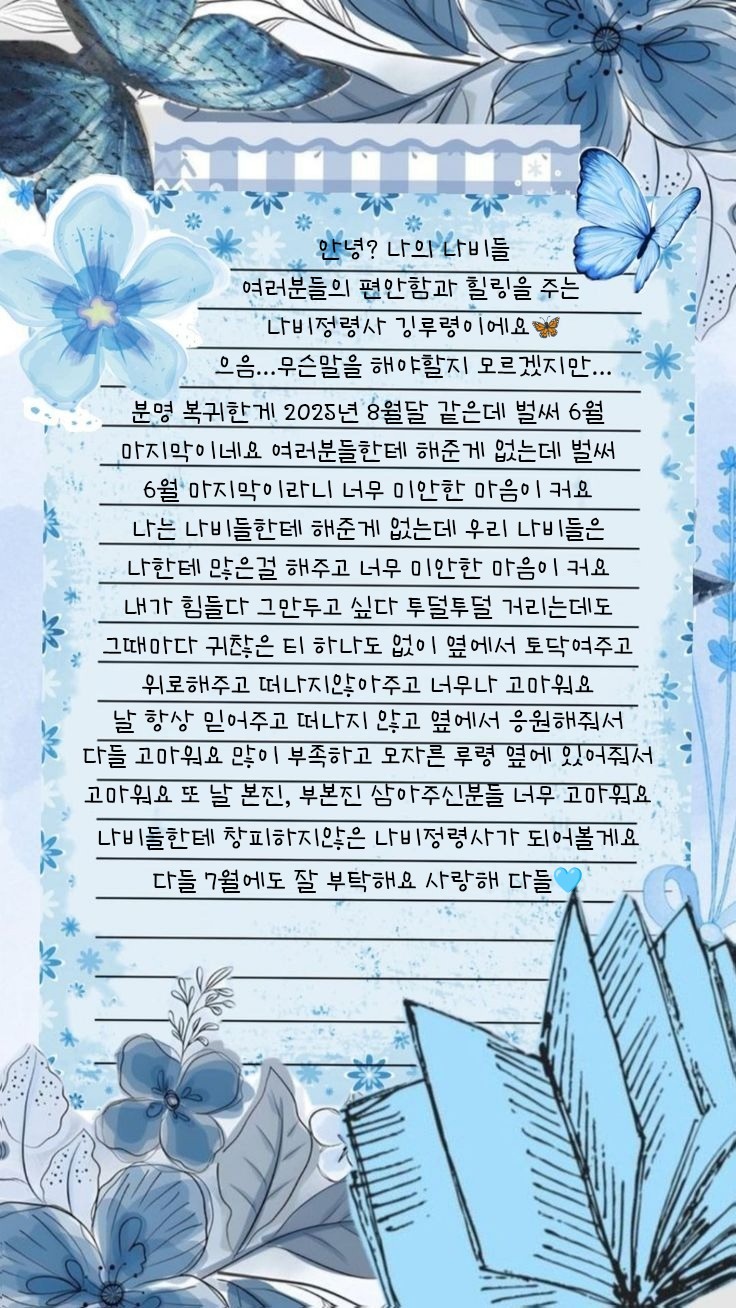 안녕? 나의 나비들
여러분들의 편안함과 힐링을 주는
나비정령사 깅루령이에요🦋
으음...무슨말을 해야할지 모르겠지만...
분명 복귀한게 2025년 8월달 같은데 벌써 6월
마지막이네요 여러분들한테 해준게 없는데 벌써
6월 마지막이라니 너무 미안한 마음이 커요
나는 나비들한테 해준게 없는데 우리 나비들은
나한테 많은걸 해주고 너무 미안한 마음이 커요
내가 힘들다 그만두고 싶다 투덜투덜 거리는데도
그때마다 귀찮은 티 하나도 없이 옆에서 토닥여주고
위로해주고 떠나지않아주고 너무나 고마워요
날 항상 믿어주고 떠나지 않고 옆에서 응원해줘서
다들 고마워요 많이 부족하고 모자른 루령 옆에 있어줘서
고마워요 또 날 본진, 부본진 삼아주신분들 너무 고마워요
나비들한테 창피하지않은 나비정령사가 되어볼게요
다들 7월에도 잘 부탁해요 사랑해 다들🩵